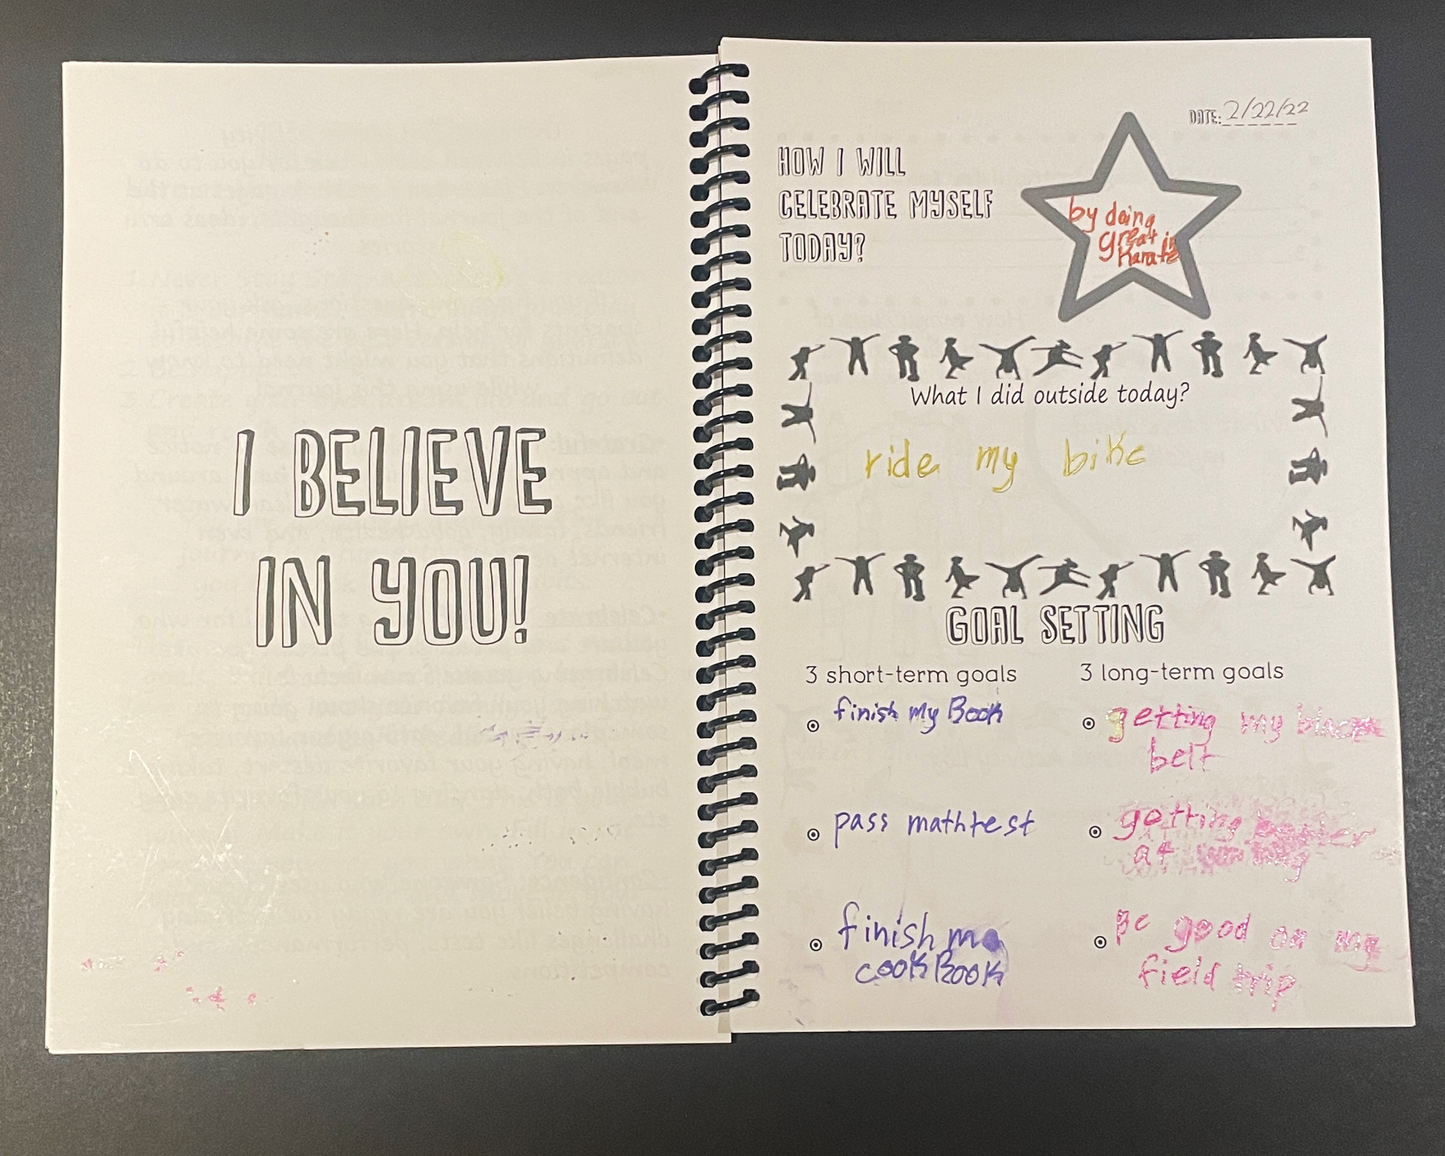 I BELIEVE
IN YOU!
DATE: 2/22/22
HOW I WILL
CELEBRATE MYSELF
TODAY?
by doing
great in
Karate
What I did outside today?
ride my bike
GOAL SETTING
3 short-term goals
finish my Book
pass mathtest
finish my
cookBook
3 long-term goals
getting my black
belt
getting better
at
Be good on my
field trip